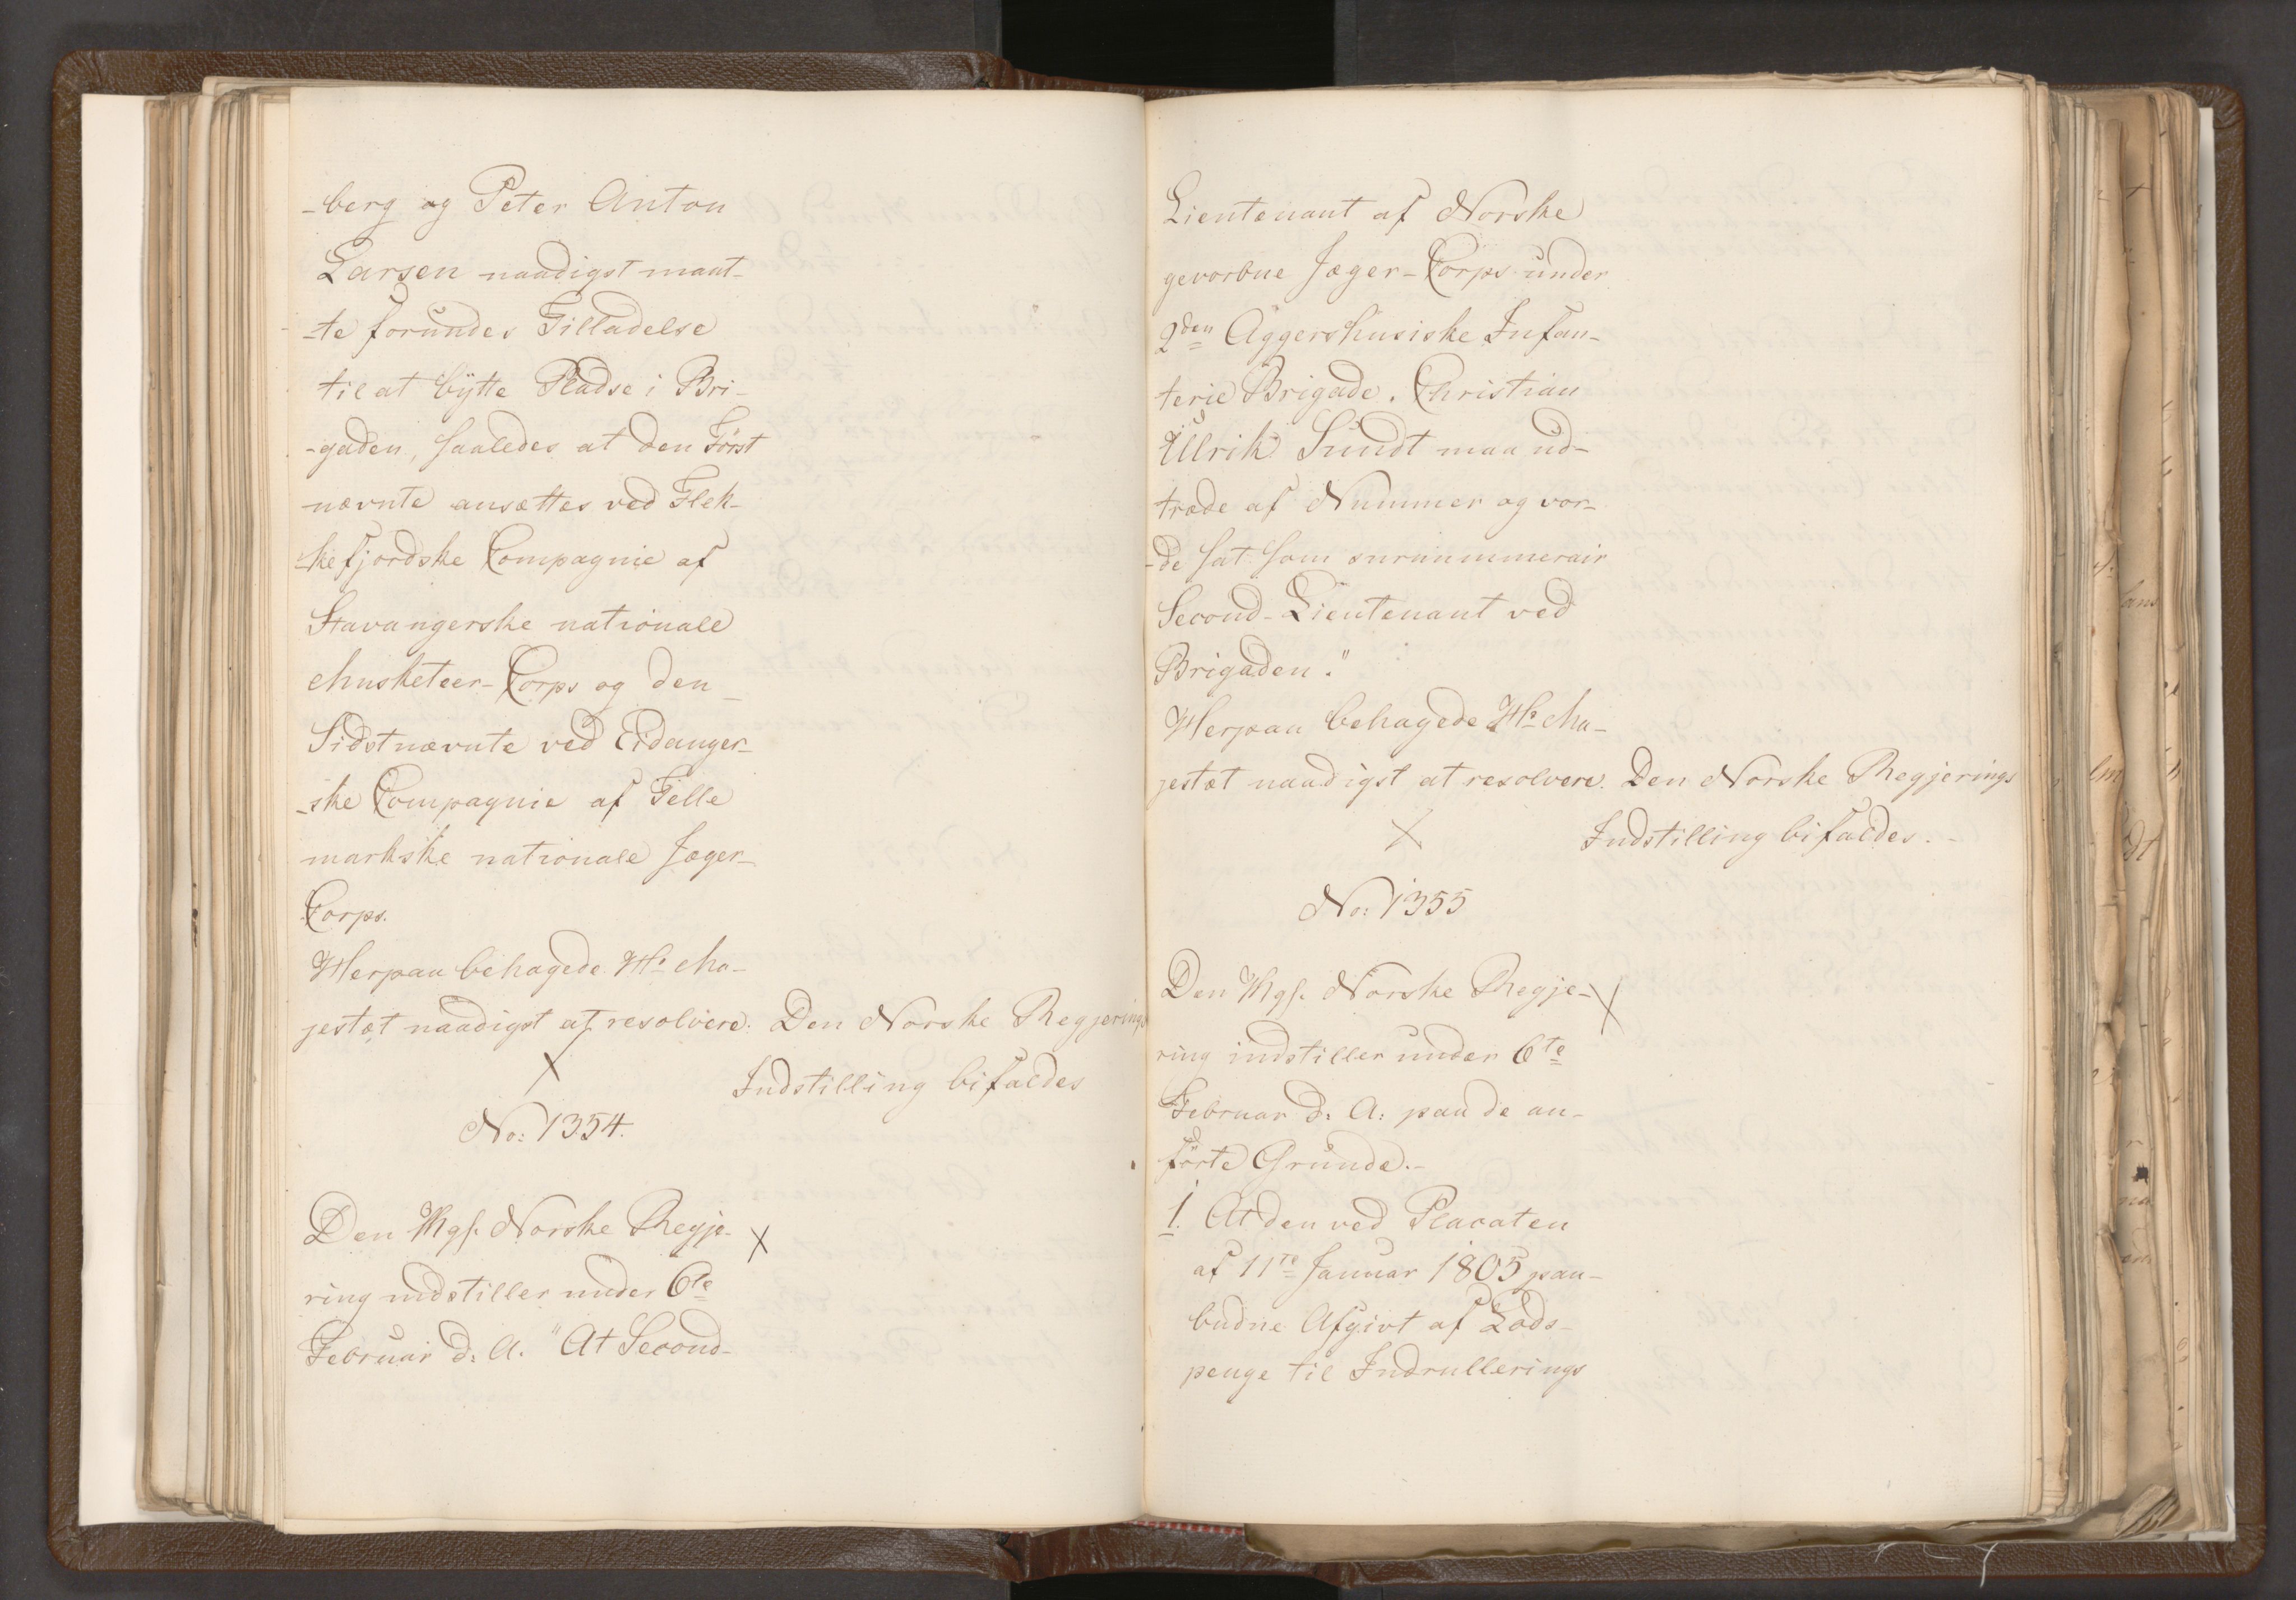 -berg og Peter Anton
Larsen naadigst maat-
-te forundes Tilladelse
til at bytte Pladse i Bri-
-gaden, saaledes at den Först
nævnte ansættes ved Flek-
-kefjordske Compagnie af
Stavangerske nationale
Musketeer-Corps og den
Sidstnævnte ved Eidanger-
-ske Compagnie af Telle
markske nationale Jæger-
Corps.
Herpaa behagede Hs Ma-
jestæt naadigst at resolvere: Den Norske Regjerings
X Indstilling bifaldes
No: 1354.
Den Kgl. Norske Regje- X
ring indstiller under 6te
Februar d: A. "At Second-
Lieutenant af Norske
gevorbne Jæger-Corps under
2den Aggershusiske Infan-
terie Brigade. Christian
Ulrik Sundt maa ud-
træde af Nummer og vor-
-de sat som surnummerair
Second-Lieutenant ved
Brigaden."
Herpaa behagede Hs Ma-
jestæt naadigst at resolvere. Den Norske Regjerings
X Indstilling bifaldes.-
No: 1355
Den Kgl. Norske Regje- X
ring indstiller under 6te
Februar d: A: paa de an-
förte Grunde.-
1. At den ved Placaten
af 11te Januar 1805 paa-
budne Afgivt af Lods-
penge til Indrullerings